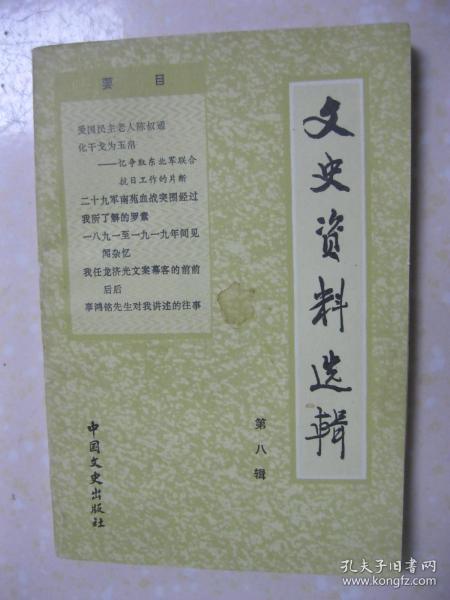 要目
爱国民主老人陈叔通
化干戈为玉帛
——忆争取东北军联合
抗日工作的片断
二十九军南苑血战突围经过
我所了解的罗素
一八九一至一九一九年间见
闻杂忆
我任龙济光文案幕客的前前
后后
辜鸿铭先生对我讲述的往事
文史资料选辑
第八辑
中国文史出版社
孔夫子旧书网
www.kongfz.com